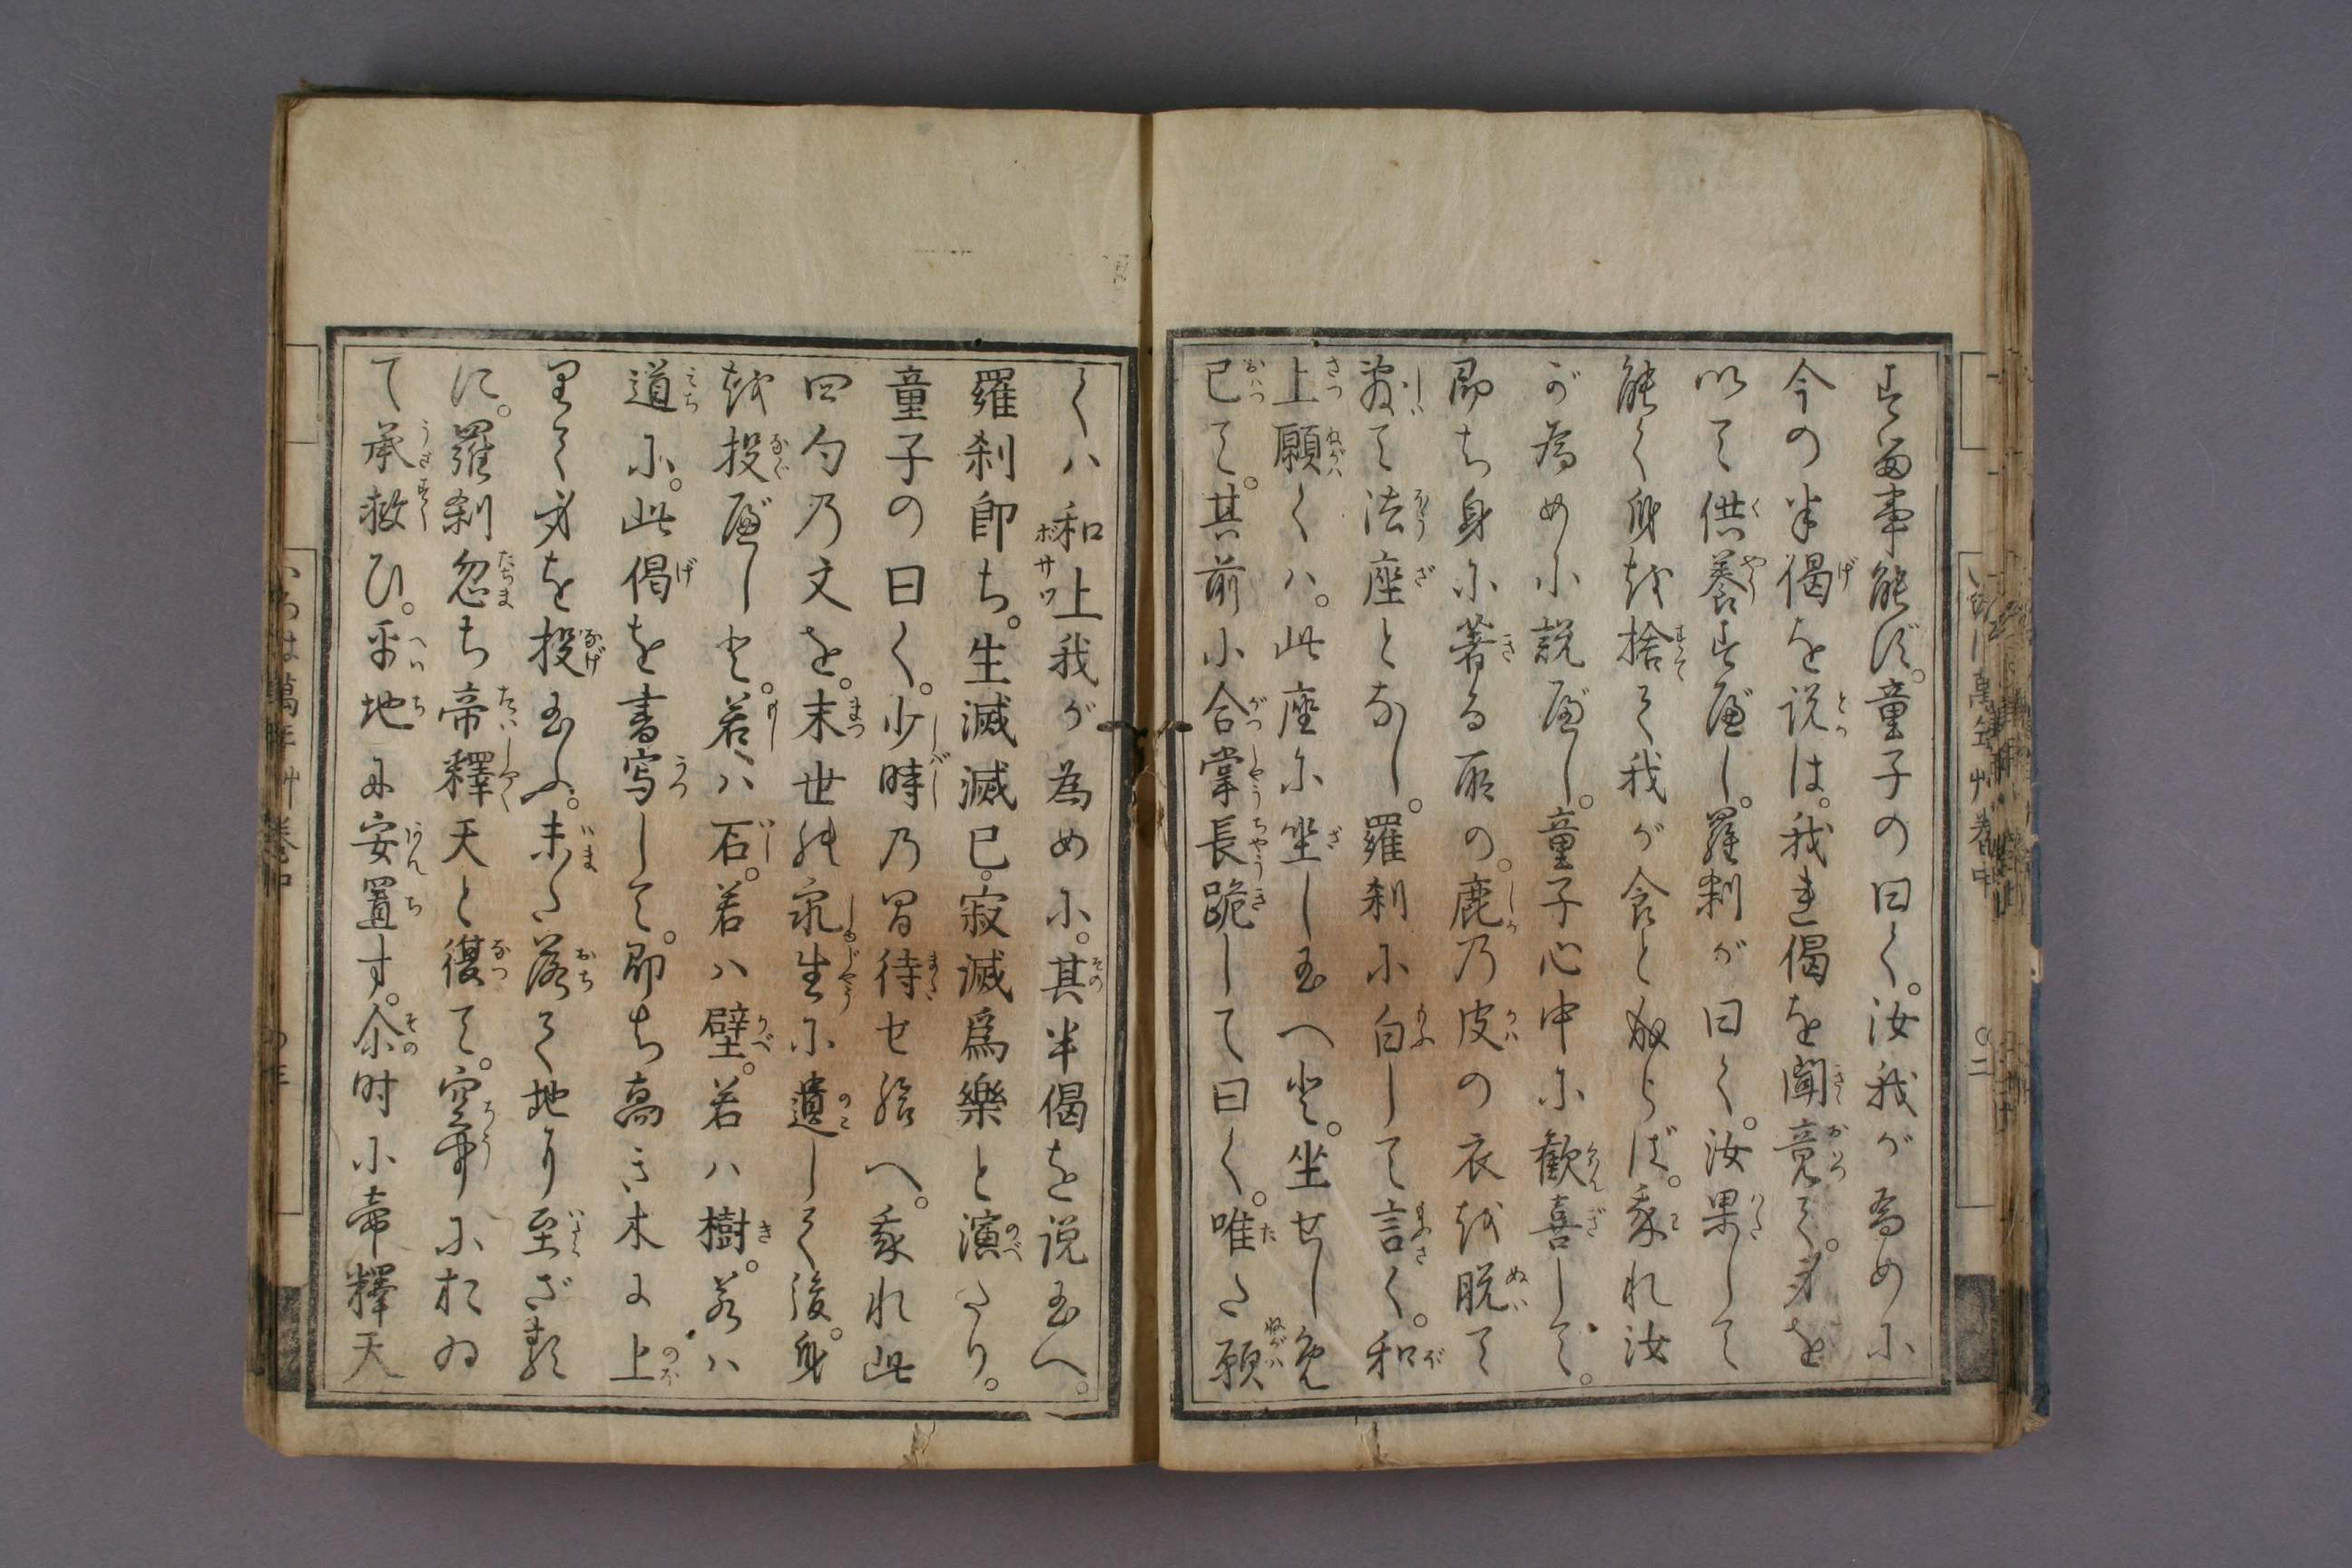 す留事能ず。童子の曰く。汝我が為め小
今の半偈を説は。我是偈を聞竟て。身を
以て供養す遍し。羅刹が曰く。汝果して
能く身越捨て我が食と成らば。我れ汝
が為め小説遍し。童子心中尓歓喜して。
即ち身尓著る所の。鹿乃皮の衣越脱て
敷て法座となし。羅刹尓白して言く。和
上願くハ。此座尓坐し玉へと。坐せしめ
已て。其前小合掌長跪して曰く。唯た願
くハ和上我が為め尓。其半偈を説玉へ。
羅刹即ち。生滅滅已。寂滅為樂と演たり。
童子の曰く。少時乃間待せ給へ。我れ此
四句乃文を。末世能衆生尓遺して後。身
越投遍しと。若ハ石。若ハ壁。若ハ樹。若ハ
道尓。此偈を書写して。即ち高き木に上
里て身を投玉ふ。未た落て地に至ざる
に。羅刹忽ち帝釋天と復て。空中尓於ゐ
て承救ひ。平地に安置す。尒时小帝釋天